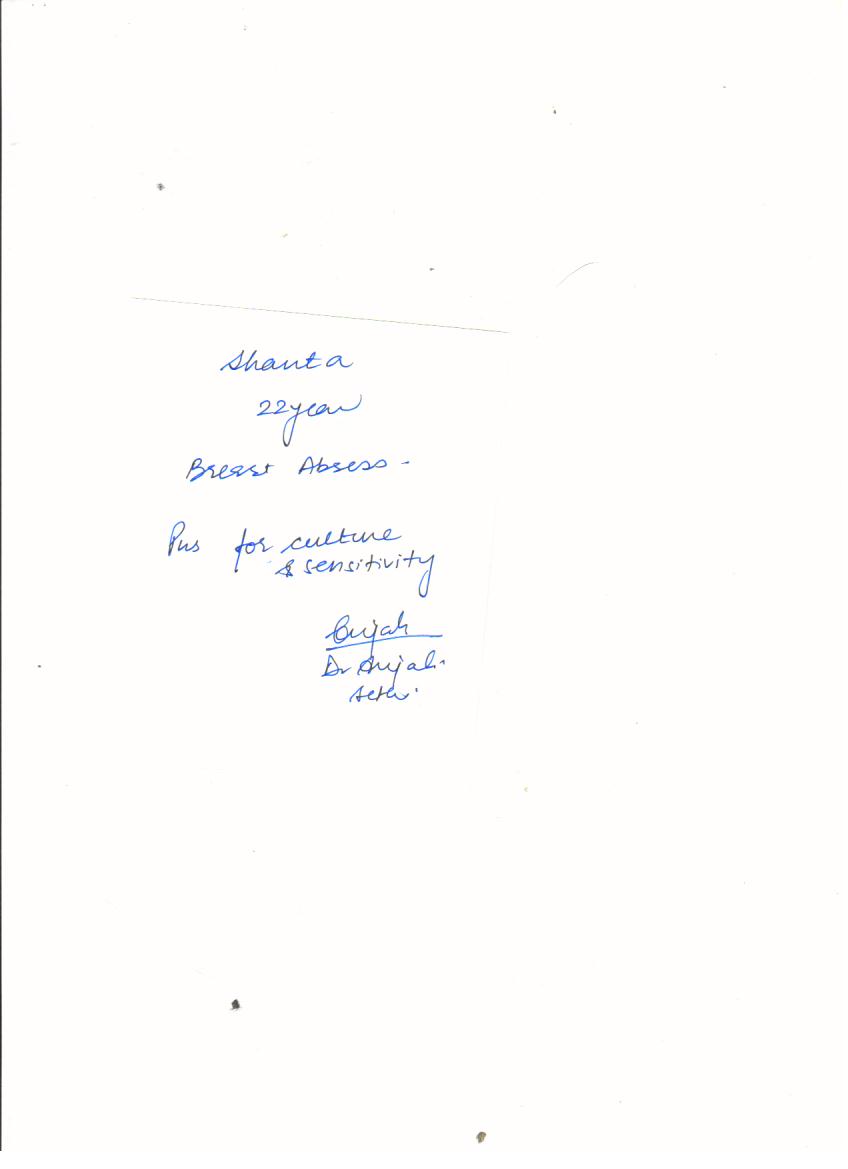 Shanta
22 year
Breast Absess -
Pus for culture
& sensitivity
Anjali
Dr Anjali
Sethi